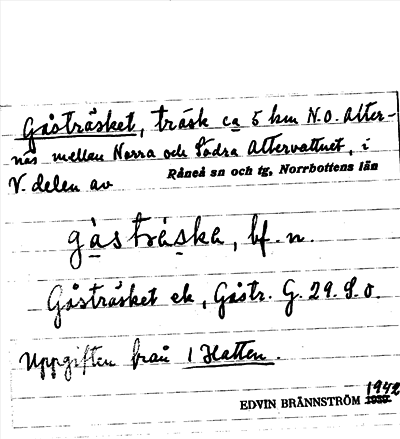 Gåsträsket, träsk ca 5 km N.O. Alter-
näs mellan Norra och Södra Altervattnet, i
V. delen av Råneå sn och tg, Norrbottens län
gàsträ̀ska, bf. n.
Gåsträsket ek, Gåstr. G. 29. S.o.
Uppgiften från 1 Hatten.
1942
EDVIN BRÄNNSTRÖM 1939.